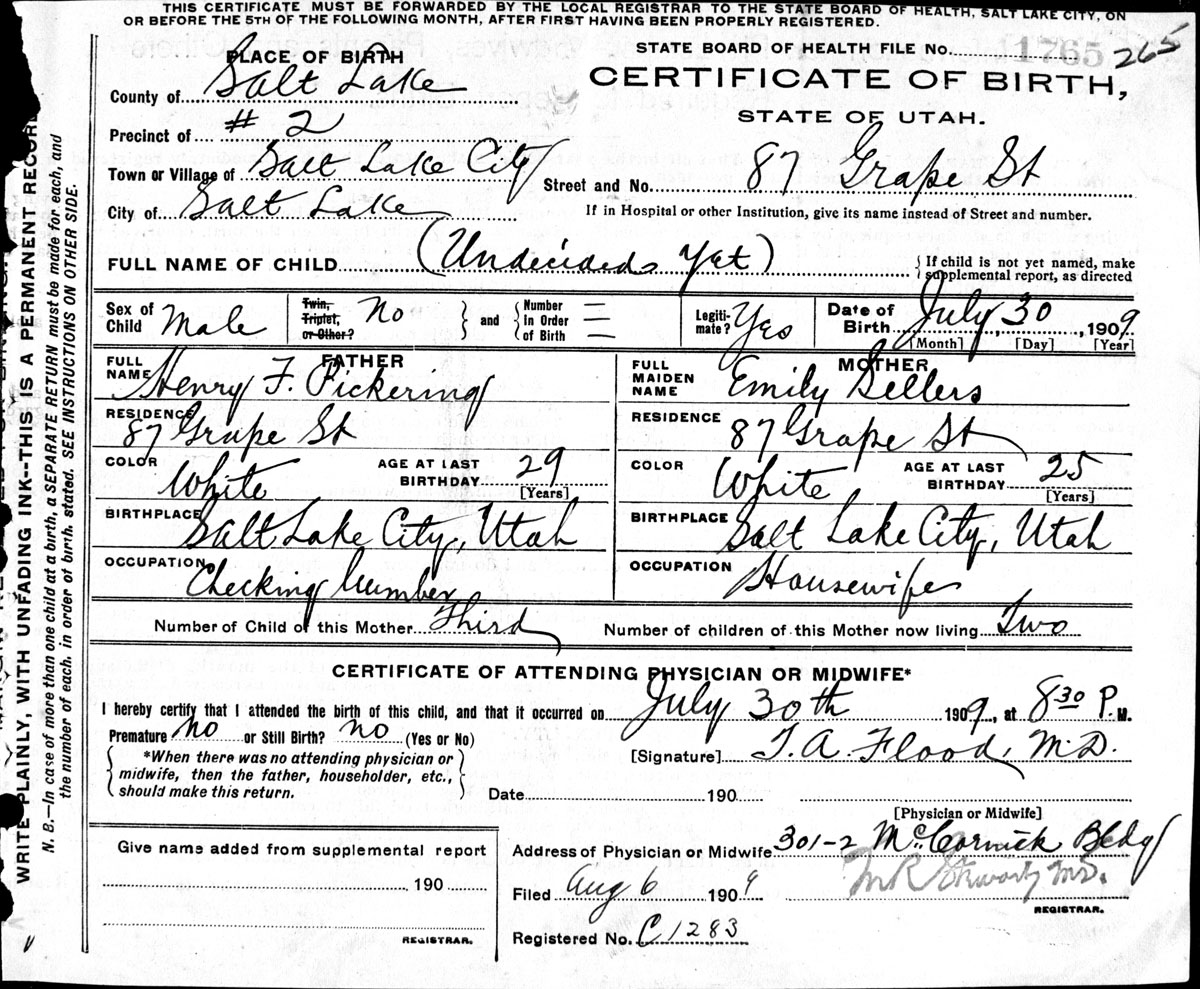 THIS CERTIFICATE MUST BE FORWARDED BY THE LOCAL REGISTRAR TO THE STATE BOARD OF HEALTH, SALT LAKE CITY, ON
OR BEFORE THE 5TH OF THE FOLLOWING MONTH, AFTER FIRST HAVING BEEN PROPERLY REGISTERED.
PLACE OF BIRTH
STATE BOARD OF HEALTH FILE No. 11765 265
CERTIFICATE OF BIRTH,
STATE OF UTAH.
County of Salt Lake
Precinct of # 2
Town or Village of Salt Lake City
Street and No. 87 Grape St
City of Salt Lake
If in Hospital or other Institution, give its name instead of Street and number.
FULL NAME OF CHILD (Undecided Yet)
If child is not yet named, make
supplemental report, as directed
Sex of Child Male
Twin, Triplet, or Other? No
and
Number in Order of Birth
Legiti-mate? Yes
Date of Birth July 30, 1909
[Month] [Day] [Year]
FATHER
FULL NAME Henry F. Pickering
RESIDENCE 87 Grape St
COLOR White AGE AT LAST BIRTHDAY 29
[Years]
BIRTHPLACE Salt Lake City, Utah
OCCUPATION Checking Lumber
MOTHER
FULL MAIDEN NAME Emily Sellers
RESIDENCE 87 Grape St
COLOR White AGE AT LAST BIRTHDAY 25
[Years]
BIRTHPLACE Salt Lake City, Utah
OCCUPATION Housewife
Number of Child of this Mother Third Number of children of this Mother now living Two
CERTIFICATE OF ATTENDING PHYSICIAN OR MIDWIFE*
I hereby certify that I attended the birth of this child, and that it occurred on July 30th 1909, at 8 30 P. M.
Premature No or Still Birth? no (Yes or No)
*When there was no attending physician or
midwife, then the father, householder, etc.,
should make this return.
[Signature] T. A. Flood, M.D.
Date 190
[Physician or Midwife]
Give name added from supplemental report
190
REGISTRAR.
Address of Physician or Midwife 301-2 McCornick Bldg
Filed Aug 6 1909
M.D.
REGISTRAR.
Registered No. C1283
WRITE PLAINLY, WITH UNFADING INK--THIS IS A PERMANENT RECORD
N. B.--In case of more than one child at a birth, a SEPARATE RETURN must be made for each, and
the number of each, in order of birth, stated. SEE INSTRUCTIONS ON OTHER SIDE.